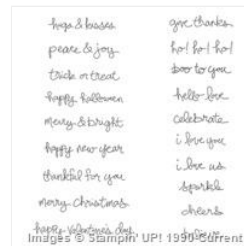 hugs & kisses
peace & joy
trick or treat
happy halloween
merry & bright
happy new year
thankful for you
merry christmas
happy valentine's day
give thanks
ho! ho! ho!
boo to you
hello love
celebrate
i love you
i love us
sparkle
cheers
Images © Stampin' UP! 1990-Current